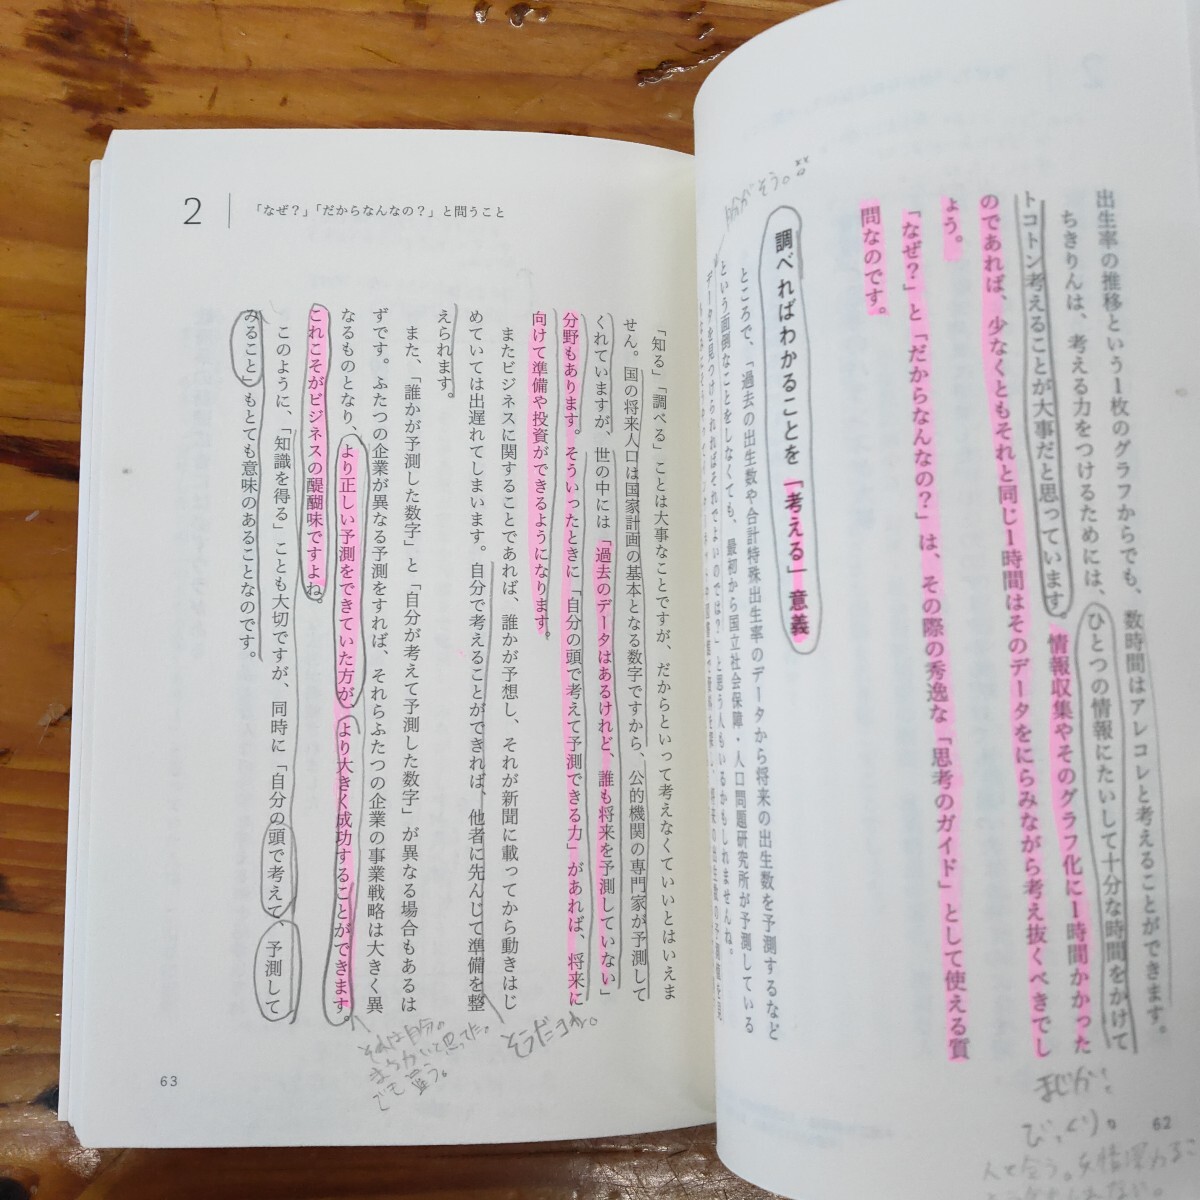 出生率の推移という1枚のグラフからでも、数時間はアレコレと考えることができます。
ちきりんは、考える力をつけるためには、ひとつの情報にたいして十分な時間をかけて
トコトン考えることが大事だと思っています。情報収集やそのグラフ化に1時間かかった
のであれば、少なくともそれと同じ1時間はそのデータをにらみながら考え抜くべきでし
ょう。
「なぜ?」と「だからなんなの?」は、その際の秀逸な「思考のガイド」として使える質
問なのです。
調べればわかることを「考える」意義
ところで、「過去の出生数や合計特殊出生率のデータから将来の出生数を予測するなど
という面倒なことをしなくても、最初から国立社会保障・人口問題研究所が予測している
データを見つけられればそれでよいのでは?」と思う人もいるかもしれませんね。
まじか!
びっくり。
62
2
「なぜ?」「だからなんなの?」と問うこと
「知る」「調べる」ことは大事なことですが、だからといって考えなくていいとはいえま
せん。国の将来人口は国家計画の基本となる数字ですから、公的機関の専門家が予測して
くれていますが、世の中には「過去のデータはあるけれど、誰も将来を予測していない」
分野もあります。そういったときに「自分の頭で考えて予測できる力」があれば、将来に
向けて準備や投資ができるようになります。
またビジネスに関することであれば、誰かが予想し、それが新聞に載ってから動きはじ
めていては出遅れてしまいます。自分で考えることができれば、他者に先んじて準備を整
えられます。
また、「誰かが予測した数字」と「自分が考えて予測した数字」が異なる場合もあるは
ずです。ふたつの企業が異なる予測をすれば、それらふたつの企業の事業戦略は大きく異
なるものとなり、より正しい予測をできていた方が、より大きく成功することができます。
これこそがビジネスの醍醐味ですよね。
このように、「知識を得る」ことも大切ですが、同時に「自分の頭で考えて、予測して
みること」もとても意味のあることなのです。
そうだよね。
それは自分の
まちがいと思ってた。
でも違う。
63